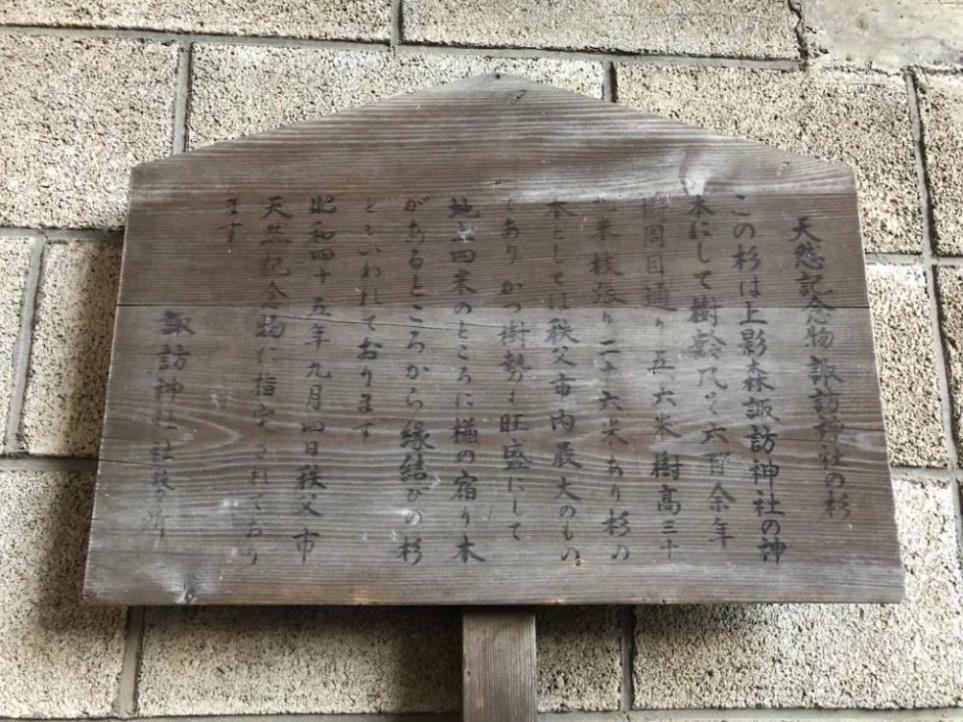 天然記念物 諏訪神社の杉
この杉は上影森諏訪神社の神
木にして樹齢凡そ六百余年
樹周目通り五、六米樹高三十
米枝張り二十六米あり杉の
木としては秩父市内最大のもの
であり かつ樹勢も旺盛にして
地上四米のところに樒の宿り木
があるところから縁結びの杉
ともいわれております
昭和四十五年九月四日秩父市
天然記念物に指定されており
ます
諏訪神社社務所